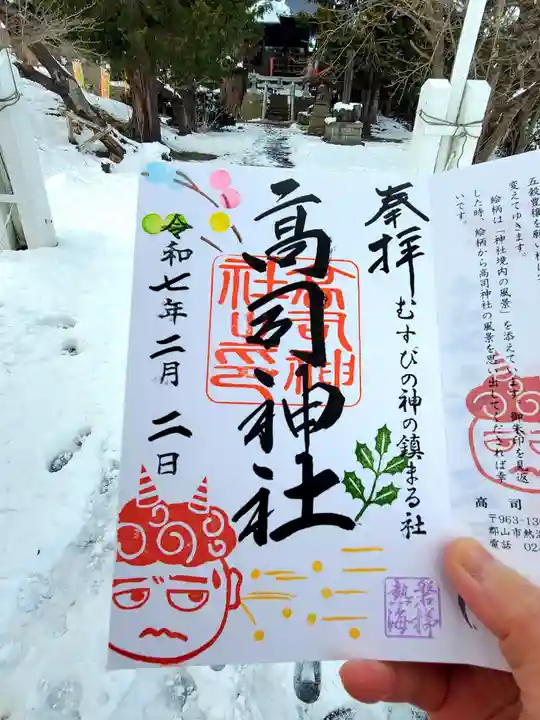 奉拝
むすびの神の鎮まる社
高司神社
令和七年二月二日
高司神社之印
磐梯
熱海
変えてゆきます。
絵柄は「神社境内の風景」を添えています。御朱印を見返
した時、絵柄から高司神社の風景を思い出してくだされば幸
いです。
高司
〒963-130
郡山市熱海
電話 024